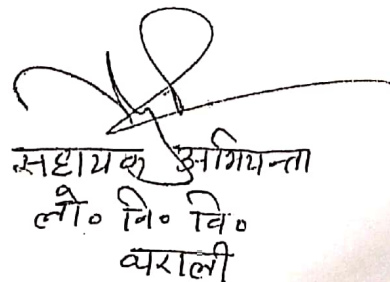 सहायक अभियन्ता
लो० नि० वि०
थराली